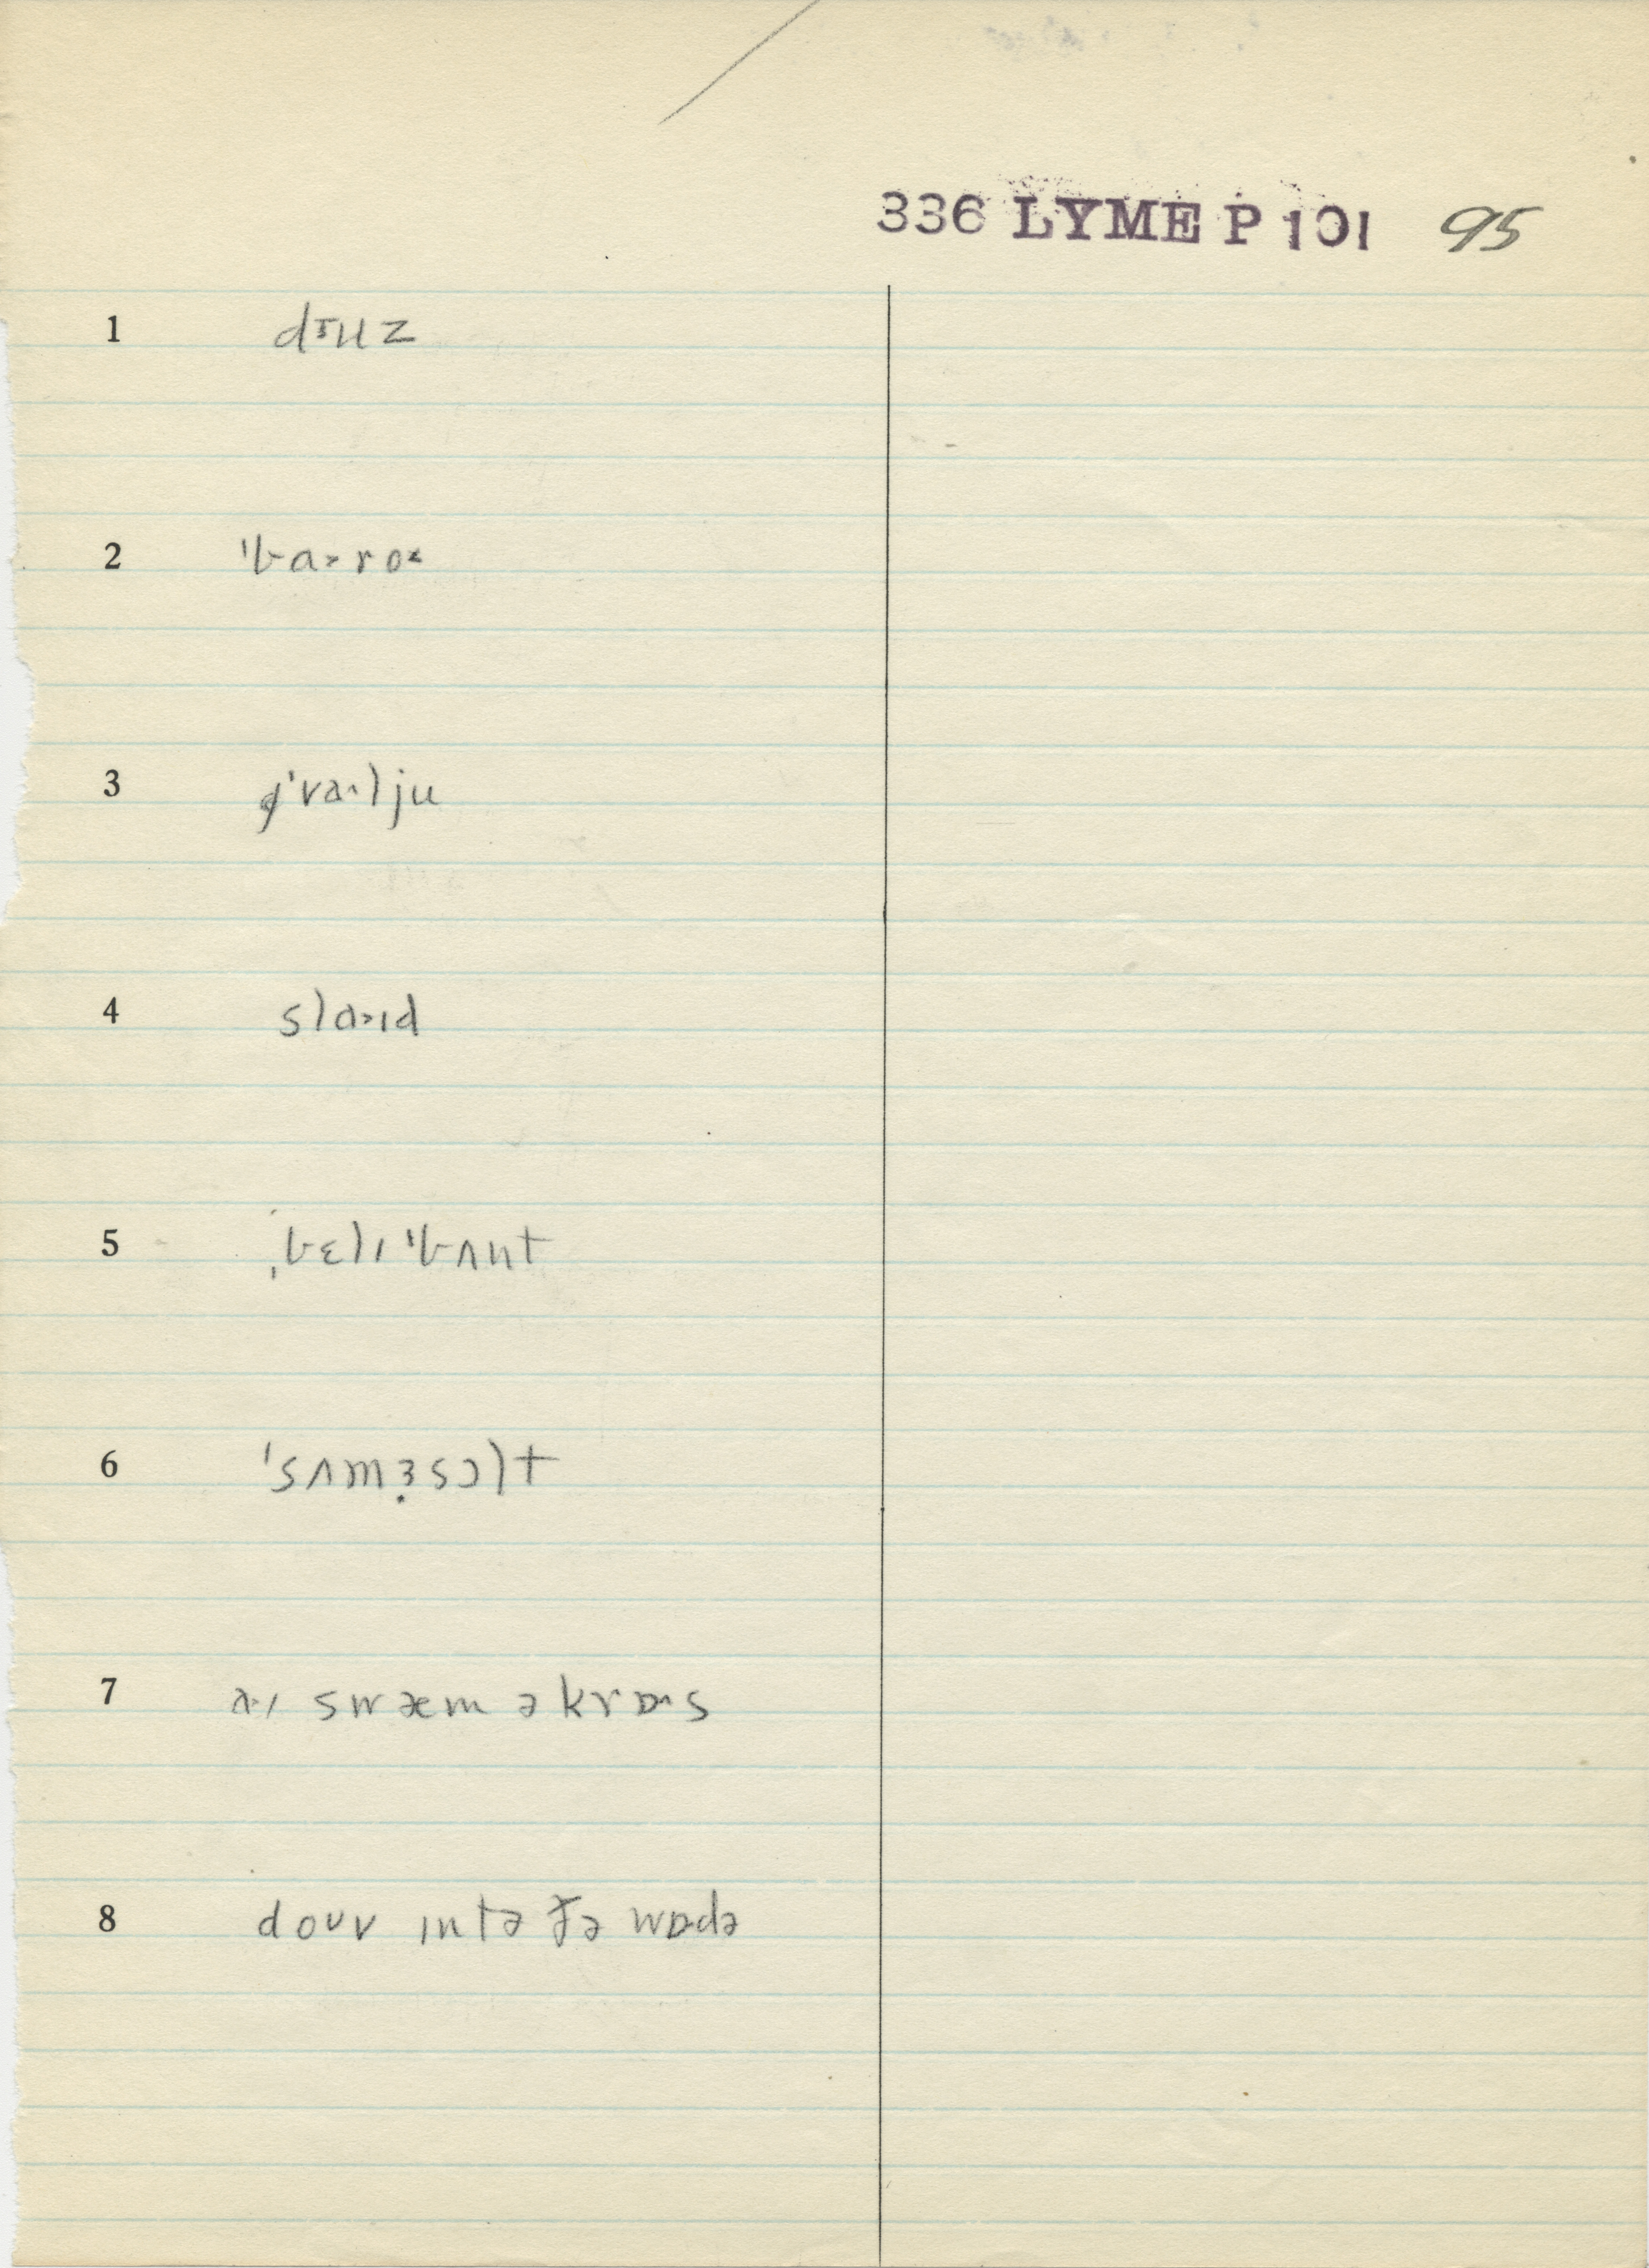 336 LYME P 101 95
1 dɪuz
2 'ba˃ro˂
3 'va˄lju
4 sla˃ɪd
5 ˌbɛlɪ'bʌnt
6 'sʌmɜ̣sɔlt
7 a·ɪ swæm əkrɒ·s
8 doʊv ɪntə ðə wɒdə